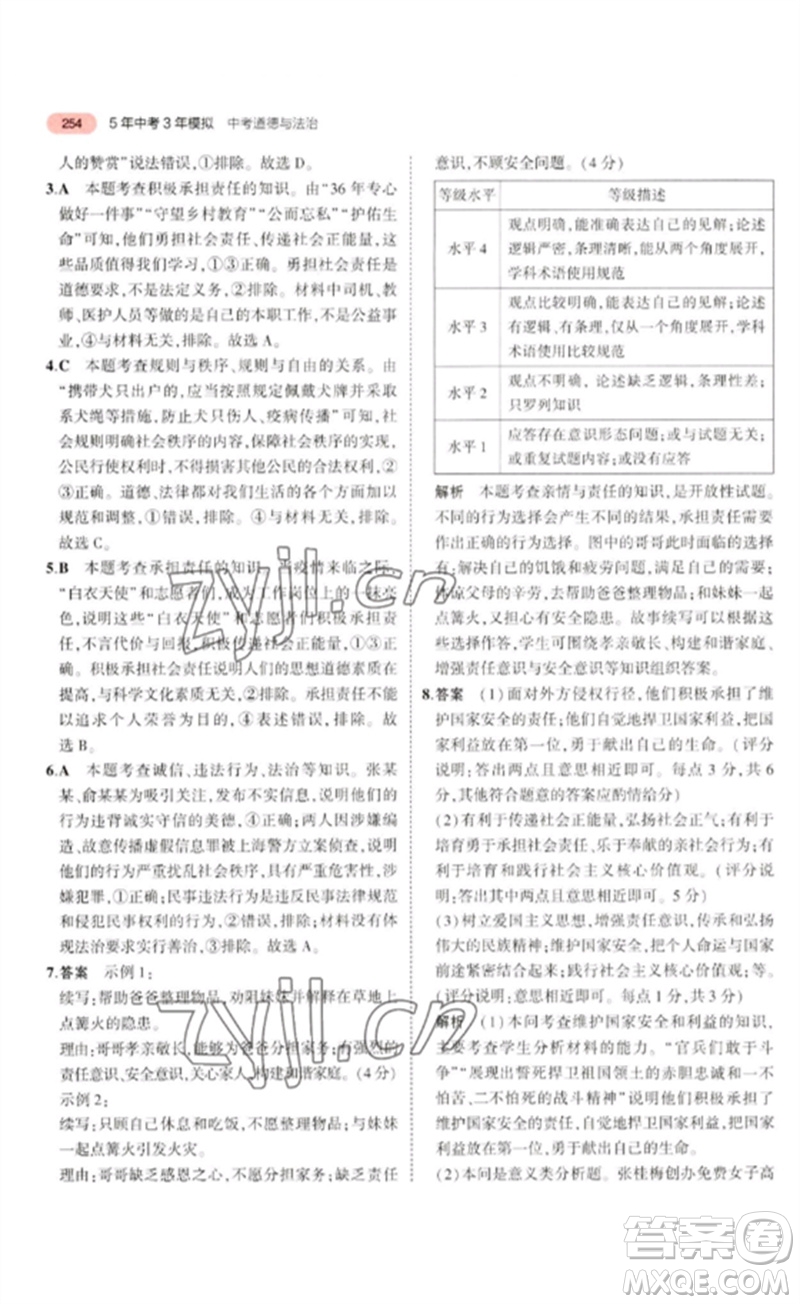 254 5年中考3年模拟 中考道德与法治
人的赞赏”说法错误,①排除。故选D。
3.A 本题考查积极承担责任的知识。由“36年专心
做好一件事”“守望乡村教育”“公而忘私”“护佑生
命”可知,他们勇担社会责任、传递社会正能量,这
些品质值得我们学习,①③正确。勇担社会责任是
道德要求,不是法定义务,②排除。材料中司机、教
师、医护人员等做的是自己的本职工作,不是公益事
业,④与材料无关,排除。故选A。
4.C 本题考查规则与秩序、规则与自由的关系。由
“携带犬只出户的,应当按照规定佩戴犬牌并采取
系犬绳等措施,防止犬只伤人、疫病传播”可知,社
会规则明确社会秩序的内容,保障社会秩序的实现,
公民行使权利时,不得损害其他公民的合法权利,②
③正确。道德、法律都对我们生活的各个方面加以
规范和调整,①错误;④与材料无关,排除。
故选C。
5.B 本题考查承担责任的知识。当疫情来临之际,
“白衣天使”和志愿者们,成为工作岗位上的一抹亮
色,说明这些“白衣天使”和志愿者积极履行责任,
不言代价与回报,积极传递社会正能量,①③正确。
积极承担社会责任说明人们的思想道德素质在
提高,与科学文化素质无关,②排除。承担责任不能
以追求个人荣誉为目的,④表述错误,排除。故
选B。
6.A 本题考查诚信、违法行为、法治等知识。张某
某、俞某某为吸引关注,发布不实信息,说明他们的
行为违背诚实守信的美德,①正确;两人因涉嫌编
造、故意传播虚假信息罪被上海警方立案侦查,说明
他们的行为严重扰乱社会秩序,具有严重危害性,涉
嫌犯罪,②正确;民事违法行为是违反民事法律规范
和侵犯民事权利的行为,③排除;材料没有体现
法治要求实行善治,④排除。故选A。
7.答案 示例1:
续写:帮助爸爸整理物品,劝阻妹妹并解释在草地上
点篝火的隐患。
理由:哥哥孝亲敬长,能够为爸爸分担家务;有强烈的
责任意识、安全意识,关心家人,构建和谐家庭。(4分)
示例2:
续写:只顾自己休息和吃饭,不愿整理物品;与妹妹
一起点篝火引发火灾。
理由:哥哥缺乏感恩之心,不愿分担家务;缺乏责任
意识,不顾安全问题。(4分)
等级水平 等级描述
水平4 观点明确,能准确表达自己的见解;论述
逻辑严密,条理清晰,能从两个角度展开,
学科术语使用规范
水平3 观点比较明确,能表达自己的见解;论述
有逻辑、有条理,仅从一个角度展开,学科
术语使用规范
水平2 观点不明确,论述缺乏逻辑,条理性差;
只罗列知识
水平1 应答存在意识形态问题;或与试题无关;
或重复试题内容;或没有应答
解析 本题考查亲情与责任的知识,是开放性试题。
不同的行为选择会产生不同的结果,承担责任需要
作出正确的选择。图中的哥哥此时面临的选择
有:解决自己的饥饿和疲劳问题,自己吃饭和休息;
体谅父母的辛劳,去帮爸爸整理物品;和妹妹一起
点篝火,又担心有安全隐患。故事续写可以根据这
些选择的内容作答,学生可围绕孝亲敬长、构建和谐家庭、
增强责任意识与安全意识等知识组织答案。
8.答案 (1)面对外方侵权行径,他们积极承担了维
护国家安全的责任;他们自觉地捍卫国家利益,把国
家利益放在第一位,勇于献出自己的生命。(评分
说明:答出两点且意思正确即可。每点3分,共6
分,其他符合题意的答案应酌情给分)
(2)有利于传递社会正能量,弘扬社会正气;有利于
培育勇于承担社会责任、乐于奉献的亲社会行为;有
利于培育和践行社会主义核心价值观。(评分说
明:答出其中两点且意思正确即可。5分)
(3)树立爱国主义思想,增强责任意识,传承和弘扬
伟大的民族精神;维护国家安全,把个人命运与国家
前途紧密结合;践行社会主义核心价值观等。
(评分说明:答出一点且意思正确即可,共3分)
解析 (1)本问考查维护国家安全和利益的知识,
主要考查学生分析材料的能力。“官兵们敢于斗
争”“展现出誓死捍卫祖国领土的赤胆忠诚和一不
怕苦、二不怕死的战斗精神”说明他们积极承担了维
护国家安全的责任,自觉捍卫国家利益,把国家利益
放在第一位,勇于献出自己的生命。
(2)本问是意义类分析题。张桂梅创办免费女子高
zyjl.cn
zyjl.cn
答案圈
MXQE.COM